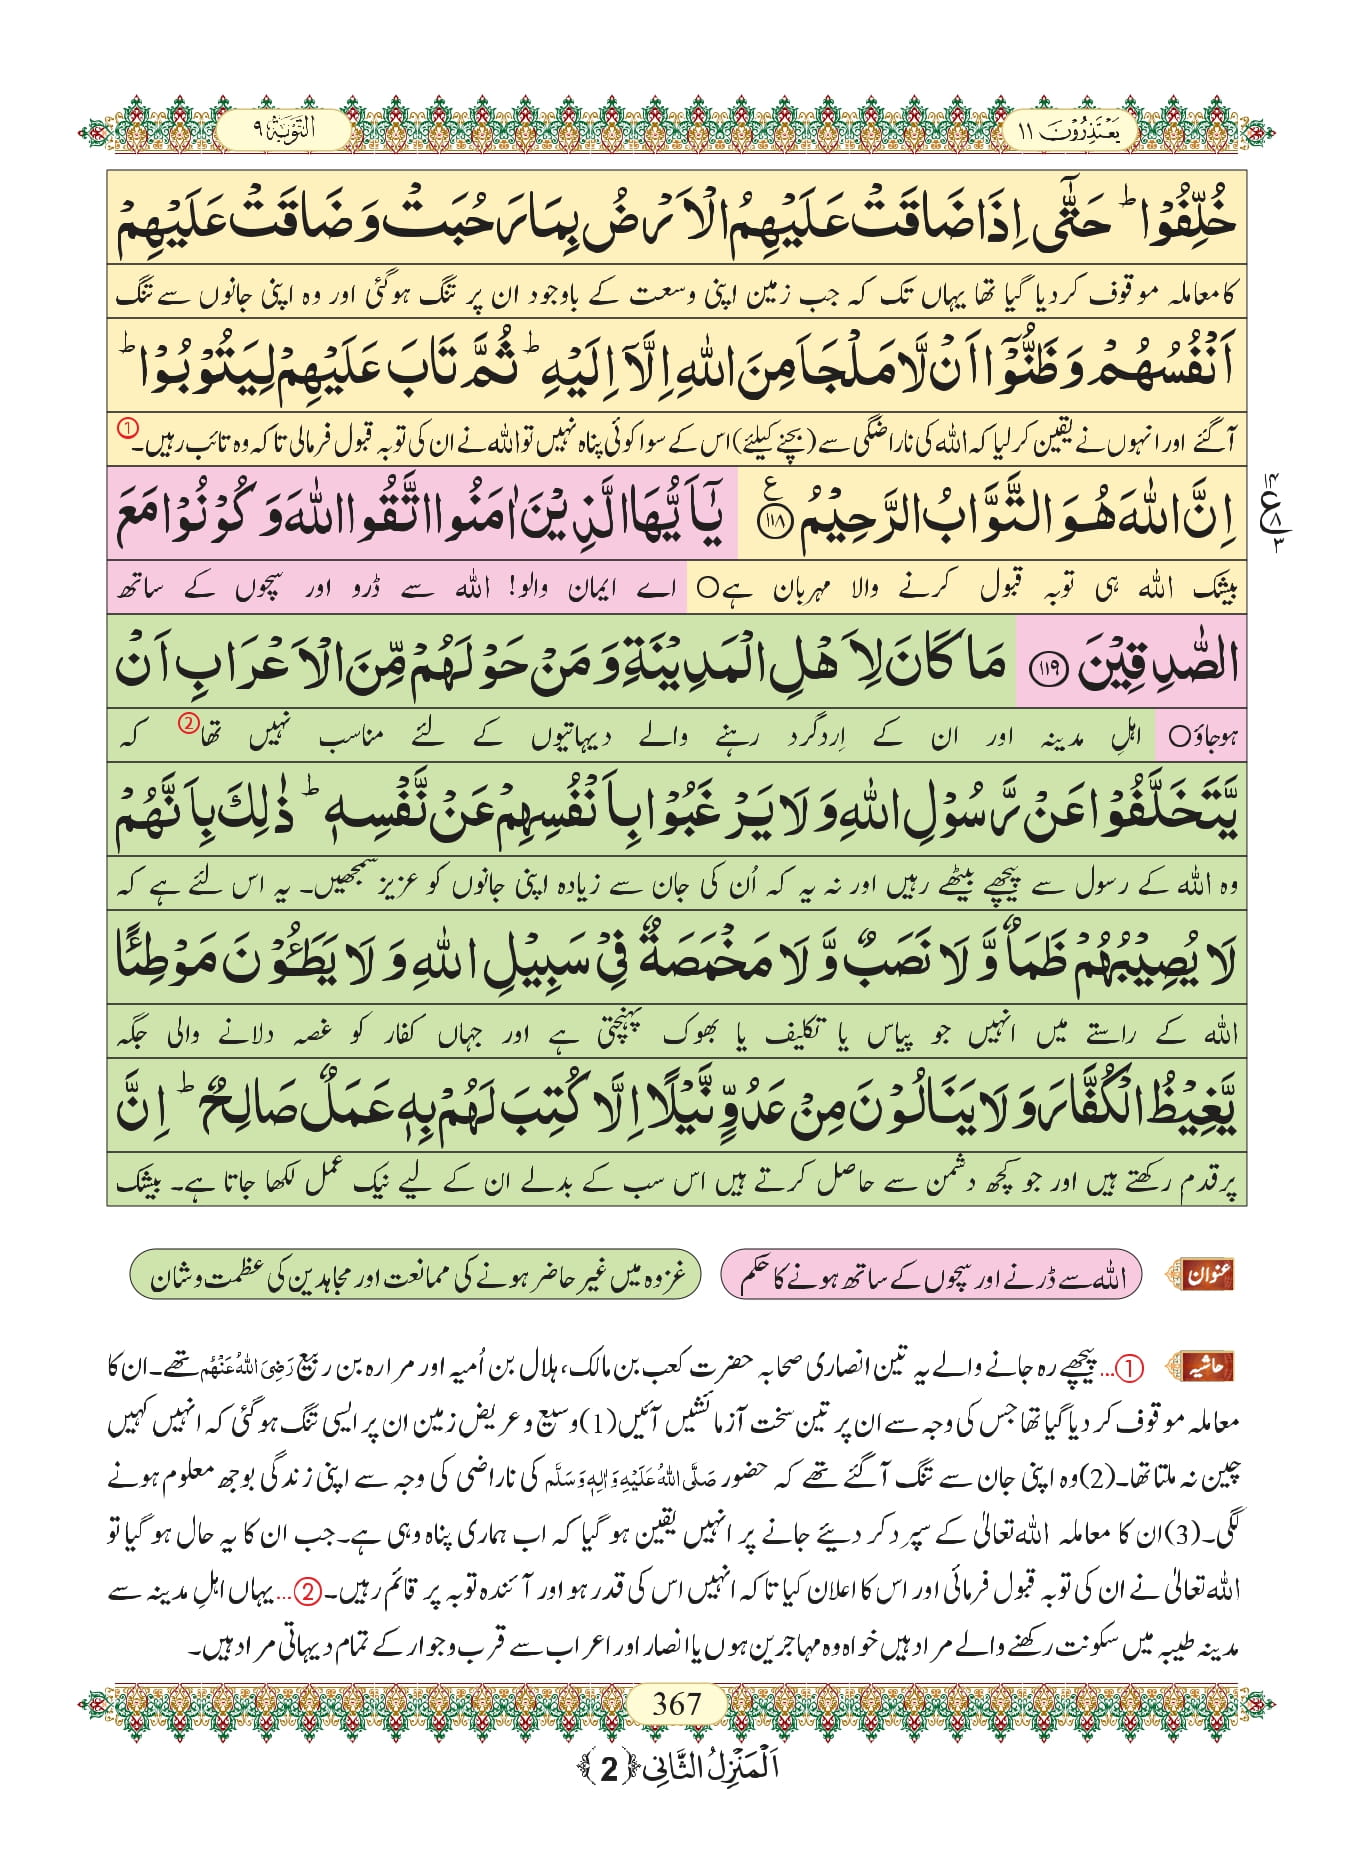 یَعْتَذِرُوْنَ ۱۱
التَّوْبَۃ ۹
خُلِّفُوْا ؕ حَتّٰۤى اِذَا ضَاقَتْ عَلَیْهِمُ الْاَرْضُ بِمَا رَحُبَتْ وَ ضَاقَتْ عَلَیْهِمْ
کا معاملہ موقوف کردیا گیا تھا یہاں تک کہ جب زمین اپنی وسعت کے باوجود ان پر تنگ ہوگئی اور وہ اپنی جانوں سے تنگ
اَنْفُسُهُمْ وَ ظَنُّوْۤا اَنْ لَّا مَلْجَاَ مِنَ اللّٰهِ اِلَّاۤ اِلَیْهِ ؕ ثُمَّ تَابَ عَلَیْهِمْ لِیَتُوْبُوْا ؕ
آگئے اور انہوں نے یقین کرلیا کہ اللہ کی ناراضگی سے (بچنے کیلئے) اس کے سوا کوئی پناہ نہیں تو اللہ نے ان کی توبہ قبول فرمالی تاکہ وہ تائب رہیں۔ ①
اِنَّ اللّٰهَ هُوَ التَّوَّابُ الرَّحِیْمُ ﴿۱۱۸﴾ ع یٰۤاَیُّهَا الَّذِیْنَ اٰمَنُوا اتَّقُوا اللّٰهَ وَ كُوْنُوْا مَعَ
۱۴ ع ۸ ۳
بیشک اللہ ہی توبہ قبول کرنے والا مہربان ہے○ اے ایمان والو! اللہ سے ڈرو اور سچوں کے ساتھ
الصّٰدِقِیْنَ ﴿۱۱۹﴾ مَا كَانَ لِاَهْلِ الْمَدِیْنَةِ وَ مَنْ حَوْلَهُمْ مِّنَ الْاَعْرَابِ اَنْ
ہوجاؤ○ اہلِ مدینہ اور ان کے اِردگرد رہنے والے دیہاتیوں کے لئے مناسب نہیں تھا ② کہ
یَّتَخَلَّفُوْا عَنْ رَّسُوْلِ اللّٰهِ وَ لَا یَرْغَبُوْا بِاَنْفُسِهِمْ عَنْ نَّفْسِهٖ ؕ ذٰلِكَ بِاَنَّهُمْ
وہ اللہ کے رسول سے پیچھے بیٹھے رہیں اور نہ یہ کہ اُن کی جان سے زیادہ اپنی جانوں کو عزیز سمجھیں۔ یہ اس لئے ہے کہ
لَا یُصِیْبُهُمْ ظَمَاٌ وَّ لَا نَصَبٌ وَّ لَا مَخْمَصَةٌ فِیْ سَبِیْلِ اللّٰهِ وَ لَا یَطَـُٔوْنَ مَوْطِئًا
اللہ کے راستے میں انہیں جو پیاس یا تکلیف یا بھوک پہنچتی ہے اور جہاں کفار کو غصہ دلانے والی جگہ
یَّغِیْظُ الْكُفَّارَ وَ لَا یَنَالُوْنَ مِنْ عَدُوٍّ نَّیْلًا اِلَّا كُتِبَ لَهُمْ بِهٖ عَمَلٌ صَالِحٌ ؕ اِنَّ
پر قدم رکھتے ہیں اور جو کچھ دشمن سے حاصل کرتے ہیں اس سب کے بدلے ان کے لیے نیک عمل لکھا جاتا ہے۔ بیشک
عنوان اللہ سے ڈرنے اور سچوں کے ساتھ ہونے کا حکم غزوہ میں غیر حاضر ہونے کی ممانعت اور مجاہدین کی عظمت و شان
حاشیہ ①... پیچھے رہ جانے والے یہ تین انصاری صحابہ حضرت کعب بن مالک، ہلال بن اُمیہ اور مرارہ بن ربیع رَضِیَ اللہُ عَنْہُم تھے۔ ان کا
معاملہ موقوف کر دیا گیا تھا جس کی وجہ سے ان پر تین سخت آزمائشیں آئیں (1) وسیع و عریض زمین ان پر ایسی تنگ ہوگئی کہ انہیں کہیں
چین نہ ملتا تھا۔ (2) وہ اپنی جان سے تنگ آگئے تھے کہ حضور صَلَّی اللہُ عَلَیْہِ وَاٰلِہٖ وَسَلَّم کی ناراضی کی وجہ سے اپنی زندگی بوجھ معلوم ہونے
لگی۔ (3) ان کا معاملہ اللہ تعالیٰ کے سپرد کر دیئے جانے پر انہیں یقین ہو گیا کہ اب ہماری پناہ وہی ہے۔ جب ان کا یہ حال ہو گیا تو
اللہ تعالیٰ نے ان کی توبہ قبول فرمائی اور اس کا اعلان کیا تاکہ انہیں اس کی قدر ہو اور آئندہ توبہ پر قائم رہیں۔ ②... یہاں اہلِ مدینہ سے
مدینہ طیبہ میں سکونت رکھنے والے مراد ہیں خواہ وہ مہاجرین ہوں یا انصار اور اعراب سے قرب و جوار کے تمام دیہاتی مراد ہیں۔
367
اَلْمَنْزِلُ الثَّانِی ﴿2﴾